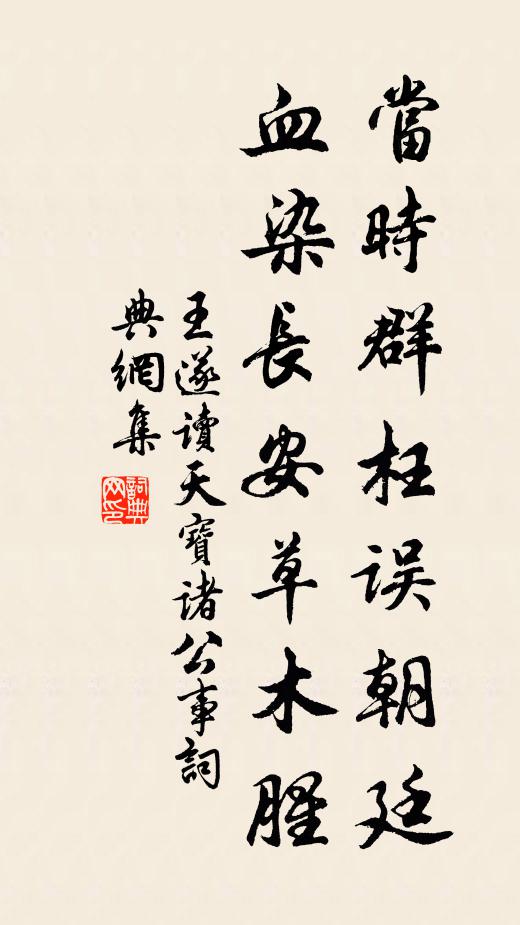 當時群枉误朝廷
血染長安草木腥
王遂讀天寶诸公事詞
典網集
詞典
网印